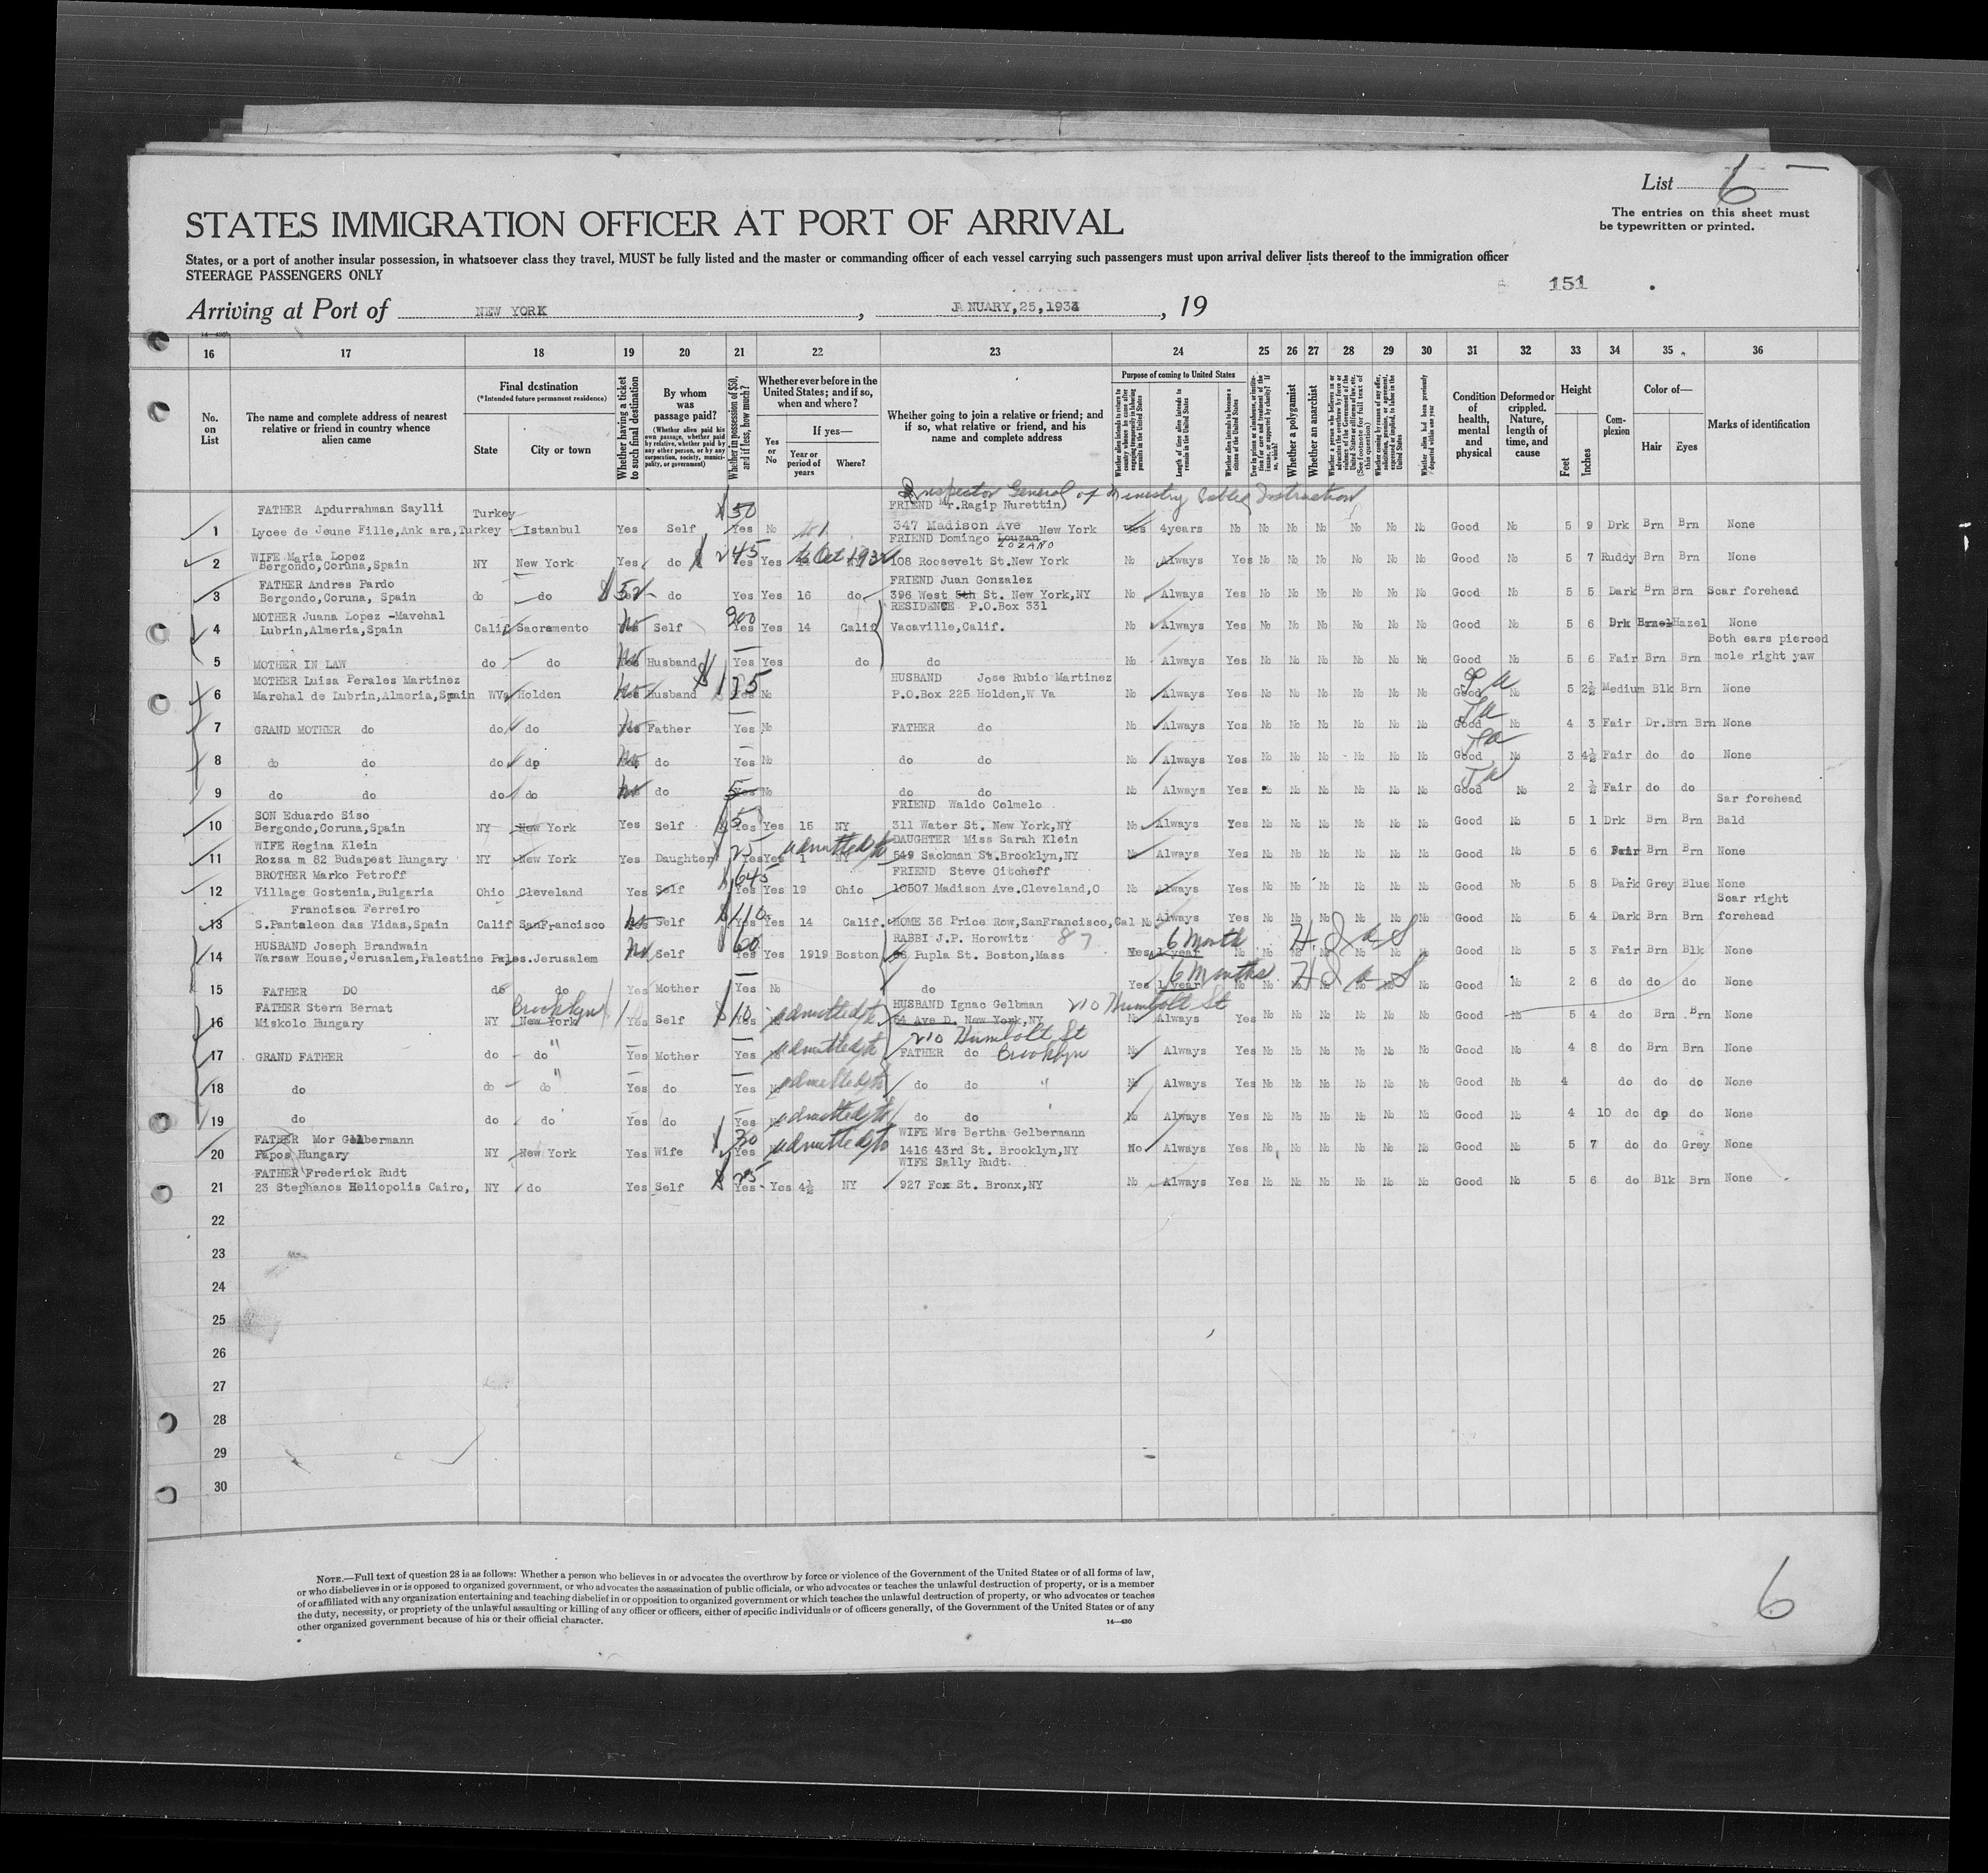 List 6
The entries on this sheet must
be typewritten or printed.
STATES IMMIGRATION OFFICER AT PORT OF ARRIVAL
States, or a port of another insular possession, in whatsoever class they travel, MUST be fully listed and the master or commanding officer of each vessel carrying such passengers must upon arrival deliver lists thereof to the immigration officer
STEERAGE PASSENGERS ONLY
151
Arriving at Port of NEW YORK, JANUARY,25,1934, 19
14—430
16 17 18 19 20 21 22 23 24 25 26 27 28 29 30 31 32 33 34 35 36
No. on List
The name and complete address of nearest relative or friend in country whence alien came
Final destination
(*Intended future permanent residence)
State City or town
Whether having a ticket to such final destination
By whom was passage paid?
(Whether alien paid his own passage, whether paid by relative, whether paid by any other person, or by any corporation, society, municipality, or government)
Whether in possession of $50, and if less, how much?
Whether ever before in the United States; and if so, when and where?
Yes or No
If yes—
Year or period of years Where?
Whether going to join a relative or friend; and if so, what relative or friend, and his name and complete address
Purpose of coming to United States
Length of time alien intends to remain in the United States
Whether alien intends to become a citizen of the United States
Whether a polygamist
Whether an anarchist
Condition of health, mental and physical
Deformed or crippled. Nature, length of time, and cause
Height
Feet Inches
Complexion
Color of—
Hair Eyes
Marks of identification
Inspector General of Ministry Public Instruction
FATHER Apdurrahman Saylli Turkey $50 FRIEND Mr.Ragip Nurettin)
1 Lycee de Jeune Fille,Ank ara,Turkey Istanbul Yes Self Yes No 347 Madison Ave New York Yes 4years No No No No No No No Good No 5 9 Drk Brn Brn None
WIFE Maria Lopez FRIEND Domingo Louzan LOZANO
2 Bergondo,Coruna,Spain NY New York Yes do $245 Yes Yes Oct 1932 108 Roosevelt St.New York No Always Yes No No No No No No Good No 5 7 Ruddy Brn Brn None
FATHER Andres Pardo FRIEND Juan Gonzalez
3 Bergondo,Coruna, Spain do do do Yes Yes 16 do 396 West 5th St. New York,NY No Always Yes No No No No No No Good No 5 5 Dark Brn Brn Scar forehead
MOTHER Juana Lopez -Mavehal 200 RESIDENCE P.O.Box 331
4 Lubrin,Almeria,Spain Calif Sacramento Yes no Self Yes Yes 14 Calif Vacaville,Calif. No Always Yes No No No No No No Good No 5 6 Drk Hazel None
Both ears pierced
5 MOTHER IN LAW do do Yes no Husband Yes Yes do do No Always Yes No No No No No No Good No 5 6 Fair Brn Brn mole right yaw
MOTHER Luisa Perales Martinez $125 HUSBAND Jose Rubio Martinez
6 Marchal de Lubrin,Almeria,Spain WVa Holden Yes no Husband Yes No P.O.Box 225 Holden,W Va No Always Yes No No No No No No Good No 5 2½ Medium Blk Brn None
7 GRAND MOTHER do do do Yes no Father Yes No FATHER do No Always Yes No No No No No No Good No 4 3 Fair Dr.Brn Brn None
8 do do do do Yes no do Yes No do do No Always Yes No No No No No No Good No 3 4½ Fair do do None
9 do do do do no do Yes No do do No Always Yes No No No No No Good No 2 ½ Fair do do
SON Eduardo Siso FRIEND Waldo Colmelo Sar forehead
10 Bergondo,Coruna,Spain NY New York Yes Self Yes Yes 15 NY 311 Water St. New York,NY No Always Yes No No No No No No Good No 5 1 Drk Brn Brn Bald
WIFE Regina Klein $25 admitted to DAUGHTER Miss Sarah Klein
11 Rozsa m 82 Budapest Hungary NY New York Yes Daughter Yes Yes 1 NY 549 Sackman St.Brooklyn,NY No Always Yes No No No No No No Good No 5 6 Fair Brn Brn None
BROTHER Marko Petroff $645 FRIEND Steve Gitcheff
12 Village Gostenia,Bulgaria Ohio Cleveland Yes Self Yes Yes 19 Ohio 10507 Madison Ave.Cleveland,O No Always Yes No No No No No No Good No 5 8 Dark Grey Blue None
Francisca Ferreiro $110 Scar right
13 S.Pantaleon das Vidas,Spain Calif SanFrancisco no Self Yes Yes 14 Calif. HOME 36 Price Row,SanFrancisco,Cal No Always Yes No No No No No No Good No 5 4 Dark Brn Brn forehead
HUSBAND Joseph Brandwain 60 RABBI J.P. Horowitz 87 6 Month
14 Warsaw House,Jerusalem,Palestine Pales.Jerusalem no Self Yes Yes 1919 Boston Pupla St. Boston,Mass Yes 1 year No No No No No No No Good No 5 3 Fair Brn Blk None
6 Months
15 FATHER DO do do Yes Mother Yes No do Yes 1 year No No No No No No No Good No 2 6 do do do None
FATHER Stern Bernat Brooklyn HUSBAND Ignac Gelbman 210 Humbolt St
16 Miskolc Hungary NY New York Yes Self $10 Yes No admitted to 54 Ave D. New York,NY No Always Yes No No No No No No Good No 5 4 do Brn Brn None
210 Humbolt St
17 GRAND FATHER do do " Yes Mother Yes No admitted to FATHER do Brooklyn No Always Yes No No No No No No Good No 4 8 do Brn Brn None
18 do do do " Yes do Yes No admitted to do do " No Always Yes No No No No No No Good No 4 do do do None
19 do do do Yes do Yes No admitted to do do No Always Yes No No No No No No Good No 4 10 do do do None
FATHER Mor Gelbermann $30 WIFE Mrs Bertha Gelbermann
20 Papos Hungary NY New York Yes Wife Yes admitted to 1416 43rd St. Brooklyn,NY No Always Yes No No No No No No Good No 5 7 do do Grey None
FATHER Frederick Rudt $25 WIFE Sally Rudt.
21 23 Stephanos Heliopolis Cairo, NY do Yes Self Yes Yes 4½ NY 927 Fox St. Bronx,NY No Always Yes No No No No No No Good No 5 6 do Blk Brn None
22
23
24
25
26
27
28
29
30
NOTE.—Full text of question 28 is as follows: Whether a person who believes in or advocates the overthrow by force or violence of the Government of the United States or of all forms of law,
or who disbelieves in or is opposed to organized government, or who advocates the assassination of public officials, or who advocates or teaches the unlawful destruction of property, or is a member
of or affiliated with any organization entertaining and teaching disbelief in or opposition to organized government or which teaches the unlawful destruction of property, or who advocates or teaches
the duty, necessity, or propriety of the unlawful assaulting or killing of any officer or officers, either of specific individuals or of officers generally, of the Government of the United States or of any
other organized government because of his or their official character.
14—430
6